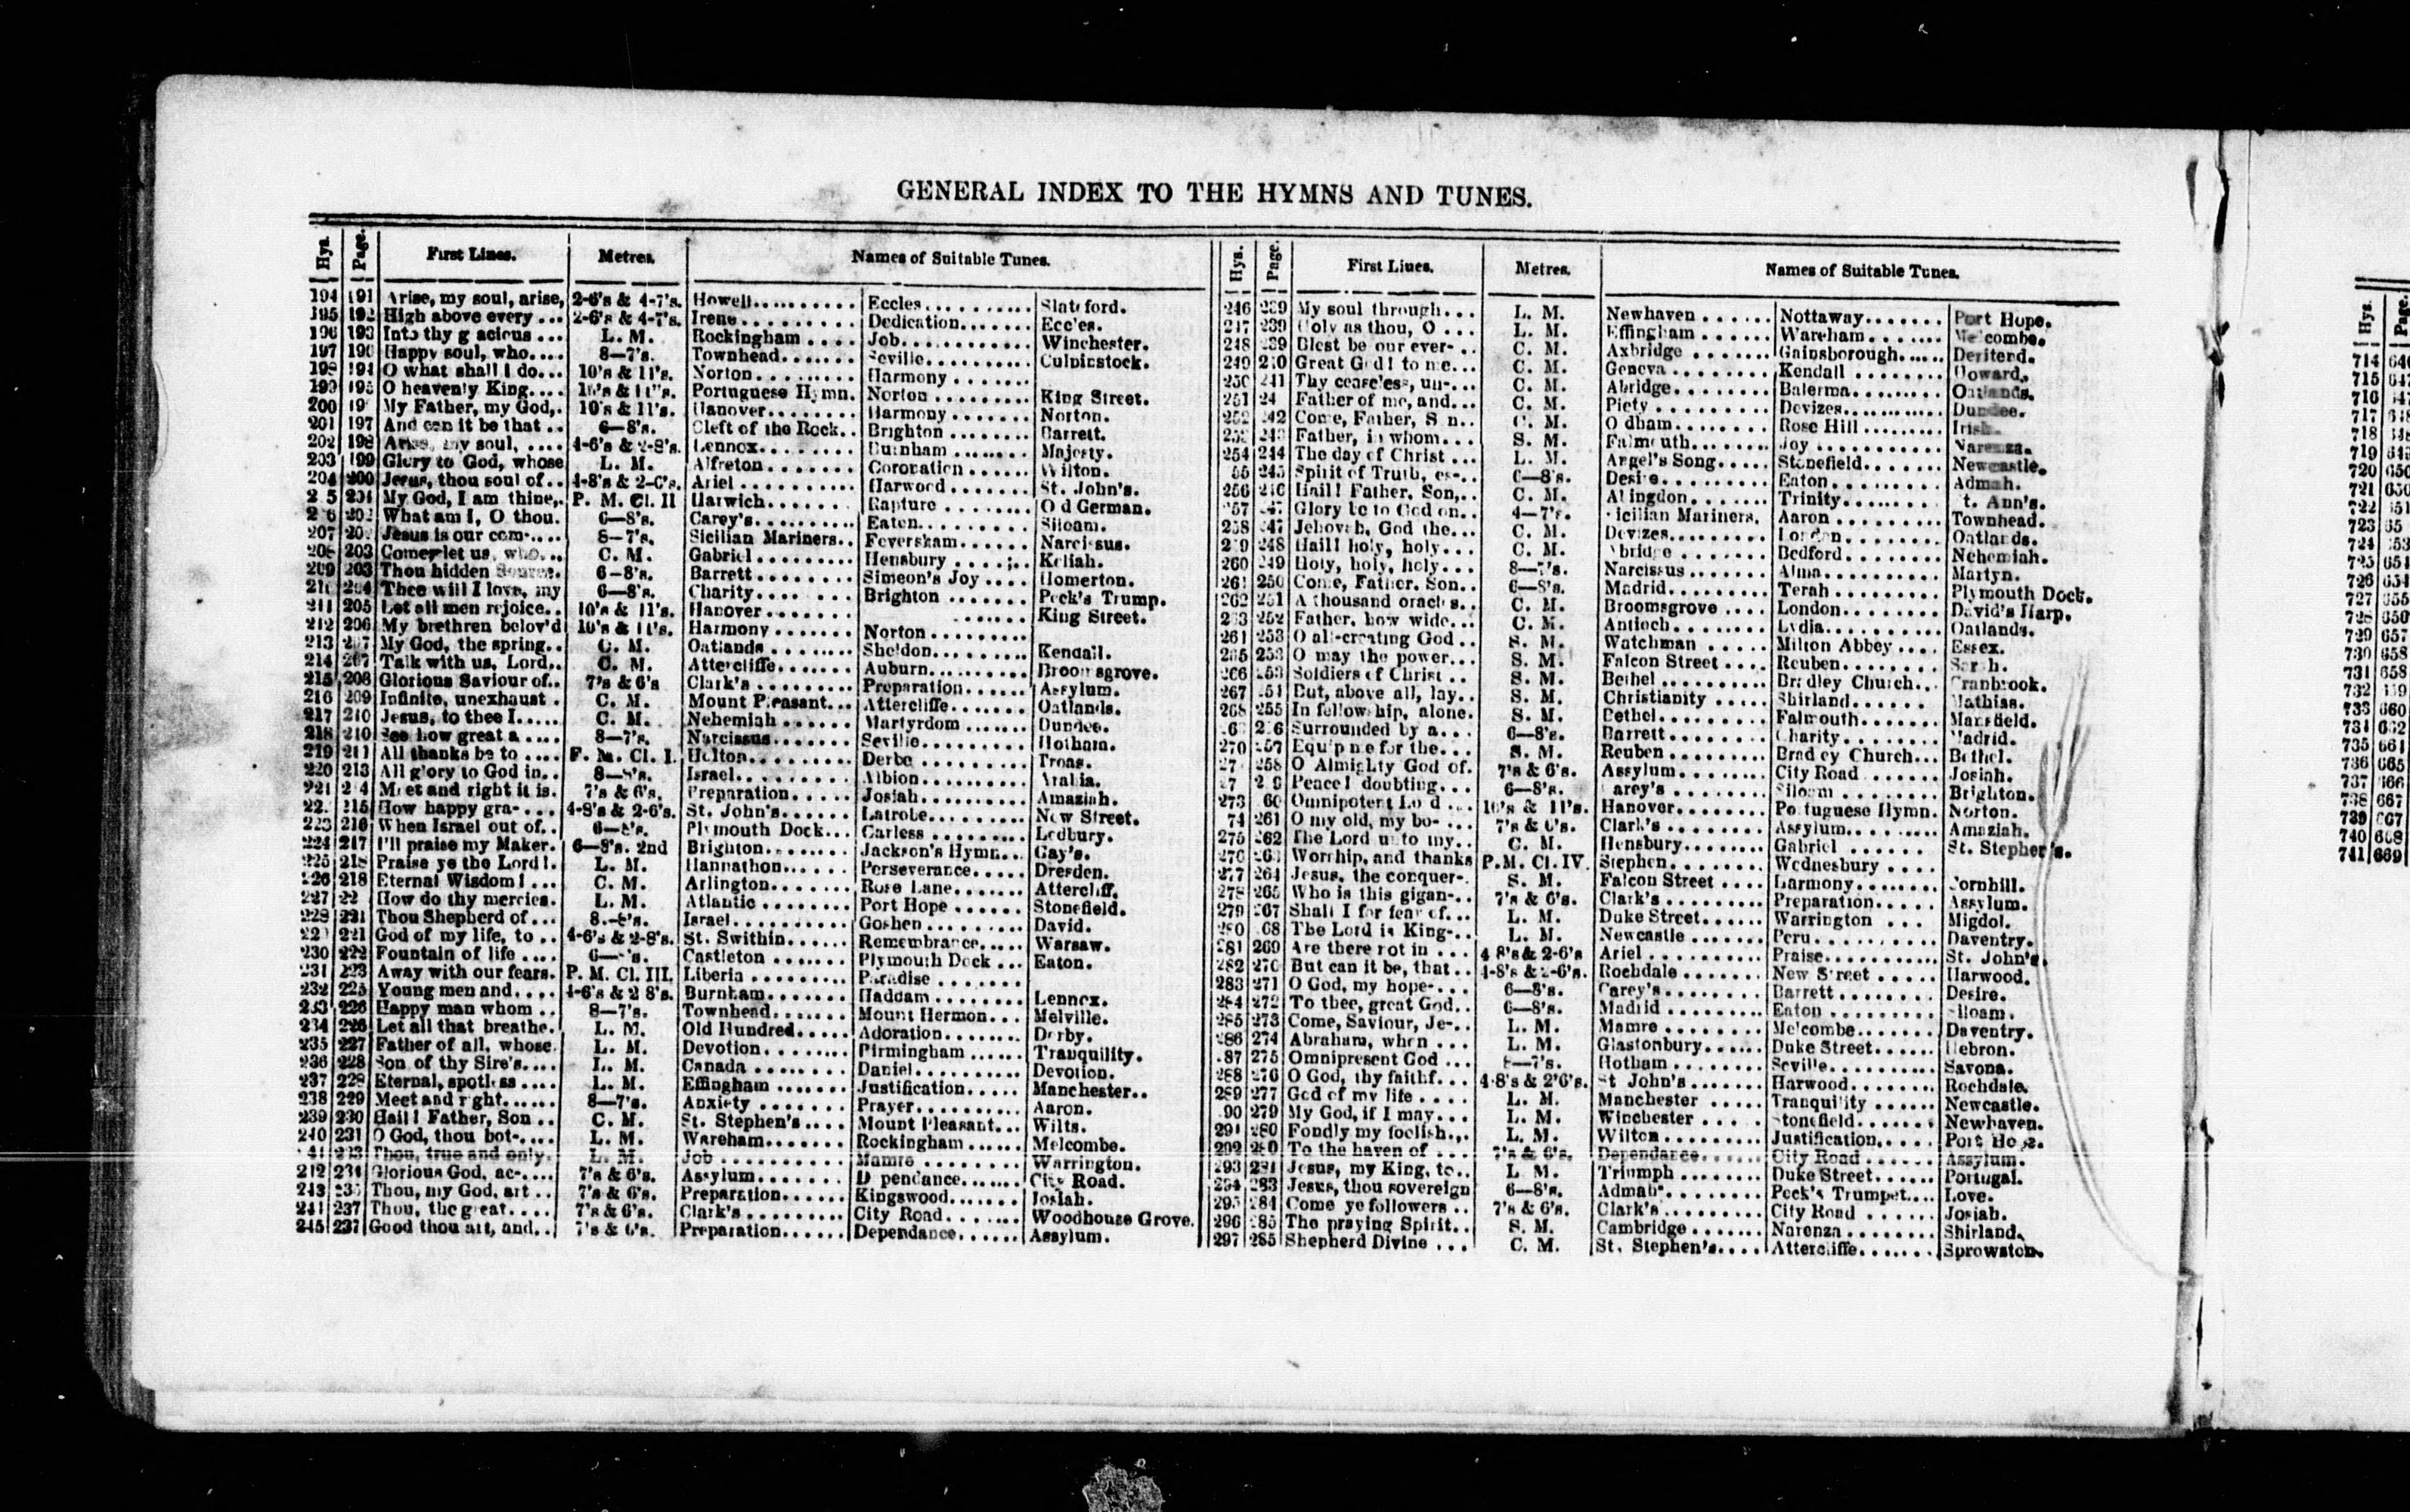 GENERAL INDEX TO THE HYMNS AND TUNES.
Hys. Page. First Lines. Metres. Names of Suitable Tunes.
194 191 Arise, my soul, arise, 2-6's & 4-7's. Howell.......... Eccles.......... Slateford.
195 192 High above every ... 2-6's & 4-7's. Irene.......... Dedication....... Eccles.
196 193 Into thy g acious ... L. M. Rockingham .... Job............ Winchester.
197 190 Happy soul, who.... 8—7's. Townhead....... Seville.......... Culmstock.
198 194 O what shall I do... 10's & 11's. Norton......... Harmony .......
199 195 O heavenly King.... 10's & 11's. Portuguese Hymn. Norton ......... King Street.
200 19 My Father, my God,. 10's & 11's. Hanover........ Harmony ....... Norton.
201 197 And can it be that .. 6—8's. Cleft of the Rock.. Brighton ........ Barrett.
202 198 Arise, my soul, .... 4-6's & 2-8's. Lennox......... Burnham ....... Majesty.
203 199 Glory to God, whose L. M. Alfreton ........ Coronation ...... Wilton.
204 200 Jesus, thou soul of.. 4-8's & 2-6's. Ariel .......... Harwood ....... St. John's.
2 5 201 My God, I am thine,. P. M. Cl. II Harwich........ Rapture ........ O d German.
2 6 202 What am I, O thou. 6—8's. Carey's......... Eaton.......... Siloam.
207 20 Jesus is our com-.... 8—7's. Sicilian Mariners.. Feversham...... Narcissus.
208 203 Come let us, who... C. M. Gabriel ......... Hensbury ...... Keliah.
209 203 Thou hidden Source. 6—8's. Barrett......... Simeon's Joy .... Homerton.
210 204 Thee will I love, my 6—8's. Charity......... Brighton ....... Peck's Trump.
211 205 Let all men rejoice.. 10's & 11's. Hanover ........ ....... King Street.
212 206 My brethren belov'd 10's & 11's. Harmony ....... Norton .........
213 207 My God, the spring.. C. M. Oatlands ........ Sheldon......... Kendall.
214 207 Talk with us, Lord,. C. M. Attercliffe....... Auburn.......... Broomsgrove.
215 208 Glorious Saviour of.. 7's & 6's Clark's ......... Preparation...... Assylum.
216 209 Infinite, unexhaust . C. M. Mount Pleasant... Attercliffe....... Oatlands.
217 210 Jesus, to thee I..... C. M. Nehemiah ...... Martyrdom ...... Dundee.
218 210 See how great a .... 8—7's. Narcissus....... Seville.......... Hotham.
219 211 All thanks be to .... P. M. Cl. I. Helton......... Derbe .......... Troas.
220 213 All glory to God in.. 8—8's. Israel.......... Albion.......... Arabia.
221 2 4 Meet and right it is. 7's & 6's. Preparation..... Josiah.......... Amaziah.
22. 215 How happy gra- ... 4-8's & 2-6's. St. John's...... Latrobe......... New Street.
223 216 When Israel out of.. 6—8's. Plymouth Dock... Carless ......... Ledbury.
224 217 I'll praise my Maker. 6—8's. 2nd Brighton........ Jackson's Hymn... Gay's.
225 218 Praise ye the Lord!. L. M. Hannathon...... Perseverance..... Dresden.
226 218 Eternal Wisdom! ... C. M. Arlington....... Rose Lane....... Attercliff.
227 22 How do thy mercies. L. M. Atlantic ........ Port Hope ...... Stonefield.
228 221 Thou Shepherd of ... 8.-8's. Israel.......... Goshen ......... David.
22 221 God of my life, to .. 4-6's & 2-8's. St. Swithin...... Remembrance..... Warsaw.
230 222 Fountain of life .... 6—8's. Castleton ....... Plymouth Dock ... Eaton.
231 223 Away with our fears. P. M. Cl. III. Liberia ......... Paradise .......
232 225 Young men and.... 4-6's & 2 8's. Burnham....... Haddam ........ Lennox.
233 226 Happy man whom .. 8—7's. Townhead....... Mount Hermon... Melville.
234 226 Let all that breathe. L. M. Old Hundred..... Adoration........ Derby.
235 227 Father of all, whose. L. M. Devotion........ Birmingham ...... Tranquility.
236 228 Son of thy Sire's.... L. M. Canada ......... Daniel.......... Devotion.
237 228 Eternal, spotless .... L. M. Effingham ....... Justification..... Manchester..
238 229 Meet and r ght...... 8—7's. Anxiety ........ Prayer.......... Aaron.
239 230 Hail! Father, Son .. C. M. St. Stephen's .... Mount Pleasant... Wilts.
240 231 O God, thou bot-.... L. M. Wareham....... Rockingham ...... Melcombe.
41 233 Thou, true and only. L. M. Job ............ Mamre ......... Warrington.
242 234 Glorious God, ac-.... 7's & 6's. Assylum........ D pendance....... City Road.
243 235 Thou, my God, art .. 7's & 6's. Preparation...... Kingswood....... Josiah.
244 237 Thou, the great.... 7's & 6's. Clark's ......... City Road........ Woodhouse Grove.
245 237 Good thou art, and.. 7's & 6's. Preparation...... Dependance...... Assylum.
Hys. Page. First Lines. Metres. Names of Suitable Tunes.
246 239 My soul through... L. M. Newhaven ...... Nottaway....... Port Hope.
247 239 Holy as thou, O ... L. M. Effingham ...... Wareham....... Melcombe.
248 239 Blest be our ever- .. C. M. Axbridge ....... Gainsborough...... Deritend.
249 240 Great God! to me... C. M. Geneva ......... Kendall ........ Howard.
250 241 Thy ceaseless, un-... C. M. Abridge......... Balerma........ Oatlands.
251 24 Father of me, and... C. M. Piety .......... Devizes........... Dundee.
252 242 Come, Father, S n.. C. M. O dham......... Rose Hill ........ Irish.
253 243 Father, in whom... S. M. Falmouth....... Joy ............ Narenza.
254 244 The day of Christ ... L. M. Angel's Song..... Stonefield....... Newcastle.
55 245 Spirit of Truth, es-.. 6—8's. Desire......... Eaton.......... Admah.
256 246 Hail! Father, Son,.. C. M. Abingdon....... Trinity......... t. Ann's.
257 247 Glory be to God on.. 4—7's. icilian Mariners. Aaron ......... Townhead.
258 247 Jehovah, God the... C. M. Devizes......... London......... Oatlands.
2 9 248 Hail! holy, holy... C. M. Abridge ........ Bedford......... Nehemiah.
260 249 Holy, holy, holy... 8—7's. Narcissus....... Alma.......... Martyn.
261 250 Come, Father, Son.. 6—8's. Madrid......... Terah ......... Plymouth Dock.
262 251 A thousand oracles.. C. M. Broomsgrove .... London........ David's Harp.
263 252 Father, how wide... C. M. Antioch......... Lydia.......... Oatlands.
264 253 O all-creating God .. S. M. Watchman ..... Milton Abbey .... Essex.
265 253 O may the power... S. M. Falcon Street .... Reuben........ Sarah.
266 253 Soldiers of Christ .. S. M. Bethel .......... Br dley Church... Cranbrook.
267 254 But, above all, lay.. S. M. Christianity ..... Shirland....... Mathias.
268 255 In fellowship, alone. S. M. Bethel......... Falmouth....... Mansfield.
6 2 6 Surrounded by a... 6—8's. Barrett......... Charity......... Madrid.
270 257 Equip me for the... S. M. Reuben ........ Brad ey Church... Bethel.
27 258 O Almighty God of. 7's & 6's. Assylum........ City Road ...... Josiah.
27 2 9 Peace! doubting... 6—8's. arey's ......... Siloam ......... Brighton.
273 60 Omnipotent Lo d ... 10's & 11's. Hanover........ Portuguese Hymn. Norton.
74 261 O my old, my bo- ... 7's & 6's. Clark's ......... Assylum......... Amaziah.
275 262 The Lord unto my.. C. M. Hensbury....... Gabriel ...... St. Stephen's.
276 263 Worship, and thanks P.M. Cl. IV. Stephen......... Wednesbury ....
277 264 Jesus, the conquer-. S. M. Falcon Street .... Harmony........ Cornhill.
278 265 Who is this gigan-.. 7's & 6's. Clark's ......... Preparation..... Assylum.
279 267 Shall I for fear of... L. M. Duke Street...... Warrington ... Migdol.
280 68 The Lord is King-.. L. M. Newcastle ....... Peru........... Daventry.
281 269 Are there not in ... 4 8's & 2-6's Ariel .......... Praise........... St. John's.
282 270 But can it be, that.. 4-8's & 2-6's. Rochdale........ New Street ..... Harwood.
283 271 O God, my hope-... 6—8's. Carey's......... Barrett........ Desire.
284 272 To thee, great God.. 6—8's. Madrid ......... Eaton ......... Siloam.
285 273 Come, Saviour, Je-.. L. M. Mamre ......... Melcombe....... Daventry.
286 274 Abraham, when ... L. M. Glastonbury...... Duke Street...... Hebron.
87 275 Omnipresent God ... 8—7's. Hotham ........ Seville.......... Savona.
288 276 O God, thy faithf... 4-8's & 2'6's. St John's ....... Harwood........ Rochdale.
289 277 God of my life .... L. M. Manchester ..... Tranquility ...... Newcastle.
90 279 My God, if I may... L. M. Winchester ..... Stonefield....... Newhaven.
291 280 Fondly my foolish... L. M. Wilton......... Justification..... Port Hope.
292 280 To the haven of ... 7's & 6's. Dependance...... City Road ...... Assylum.
293 281 Jesus, my King, to.. L M. Triumph ....... Duke Street...... Portugal.
294 283 Jesus, thou sovereign 6—8's. Admah......... Peck's Trumpet.... Love.
295 284 Come ye followers .. 7's & 6's. Clark's......... City Road ...... Josiah.
296 285 The praying Spirit.. S. M. Cambridge...... Narenza ........ Shirland.
297 285 Shepherd Divine ... C. M. St. Stephen's.... Attercliffe....... Sprowston.
Hys. Page.
714 64
715 647
716 647
717 648
718 648
719 649
720 650
721 650
722 651
723 65
724 653
725 654
726 654
727 655
728 656
729 657
730 658
731 658
732 659
733 660
734 662
735 664
736 665
737 666
738 667
739 667
740 668
741 669